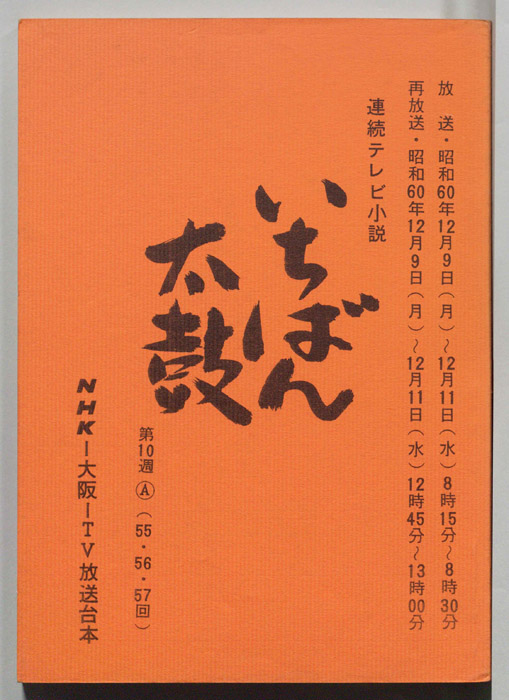 放送・昭和60年12月9日(月)~12月11日(水)8時15分~8時30分
再放送・昭和60年12月9日(月)~12月11日(水)12時45分~13時00分
連続テレビ小説
いちばん
太鼓
第10週Ⓐ(55・56・57回)
NHK—大阪—TV放送台本